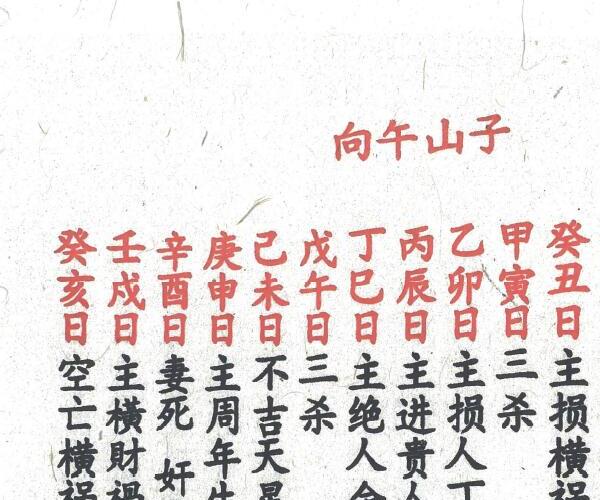 子山午向
癸丑日主损横
甲寅日三杀
乙卯日主损人丁
丙辰日主进贵人
丁巳日主绝人命
戊午日三杀
己未日不吉天
庚申日主周年生
辛酉日妻死 奸
壬戌日主横財禍
癸亥日空亡横禍